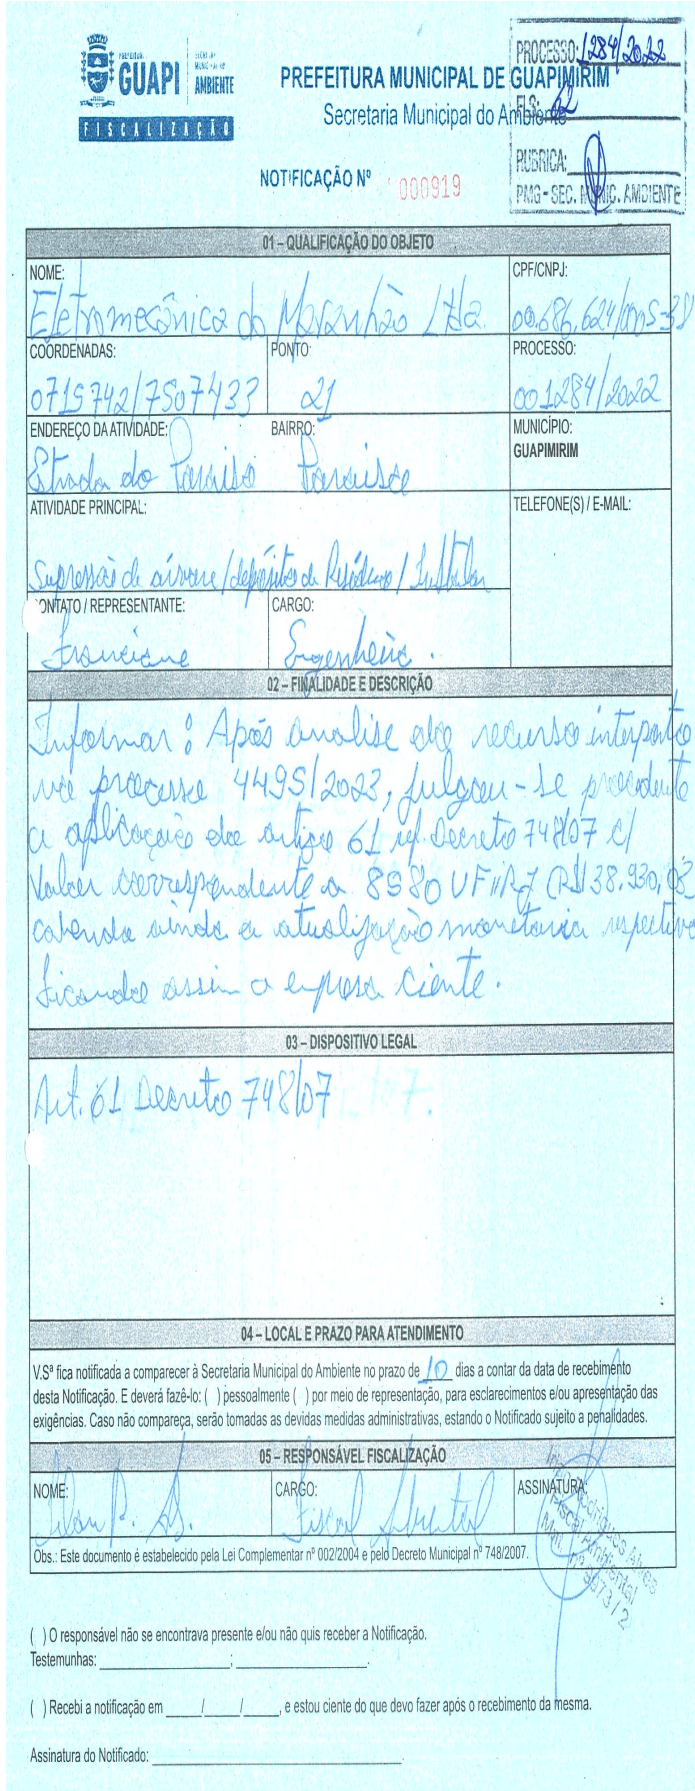 PREFEITURA
GUAPI
AMBIENTE
FISCALIZAÇÃO
PREFEITURA MUNICIPAL DE GUAPIMIRIM
Secretaria Municipal do Ambiente
NOTIFICAÇÃO Nº 000919
PROCESSO: 1284/2022
FLS: 62
RUBRICA:
PMG - SEC. MUNIC. AMBIENTE
01 – QUALIFICAÇÃO DO OBJETO
NOME: CPF/CNPJ:
Eletromecânica do Maranhão Ltda. 00.686.624/0005-38
COORDENADAS: PONTO: PROCESSO:
0715742/7507433 21 001284/2022
ENDEREÇO DA ATIVIDADE: BAIRRO: MUNICÍPIO:
Estrada do Paraiso Paraiso GUAPIMIRIM
ATIVIDADE PRINCIPAL: TELEFONE(S) / E-MAIL:
Supressão de árvore/depósito de Resíduo /
CONTATO / REPRESENTANTE: CARGO:
Franciane Engenheira.
02 – FINALIDADE E DESCRIÇÃO
Informar: Após analise do recurso interposto
via processo 4495/2023, julgou-se procedente
a aplicação do artigo 61 ref. Decreto 748/07 c/
Valor correspondente a 8980 UFIRRJ (R$138.930,03
cabendo ainda a atualização monetaria respectiva
ficando assim a empresa ciente.
03 – DISPOSITIVO LEGAL
Art. 61 Decreto 748/07
04 – LOCAL E PRAZO PARA ATENDIMENTO
V.Sª fica notificada a comparecer à Secretaria Municipal do Ambiente no prazo de 10 dias a contar da data de recebimento
desta Notificação. E deverá fazê-lo: ( ) pessoalmente ( ) por meio de representação, para esclarecimentos e/ou apresentação das
exigências. Caso não compareça, serão tomadas as devidas medidas administrativas, estando o Notificado sujeito a penalidades.
05 – RESPONSÁVEL FISCALIZAÇÃO
NOME: CARGO: ASSINATURA:
Fiscal Ambiental
Rodrigues Alves
Fiscal Ambiental
Mat. nº 9073/2
Obs.: Este documento é estabelecido pela Lei Complementar nº 002/2004 e pelo Decreto Municipal nº 748/2007.
( ) O responsável não se encontrava presente e/ou não quis receber a Notificação.
Testemunhas: ____________________; ____________________.
( ) Recebi a notificação em _____/_____/_____, e estou ciente do que devo fazer após o recebimento da mesma.
Assinatura do Notificado: ________________________________________.